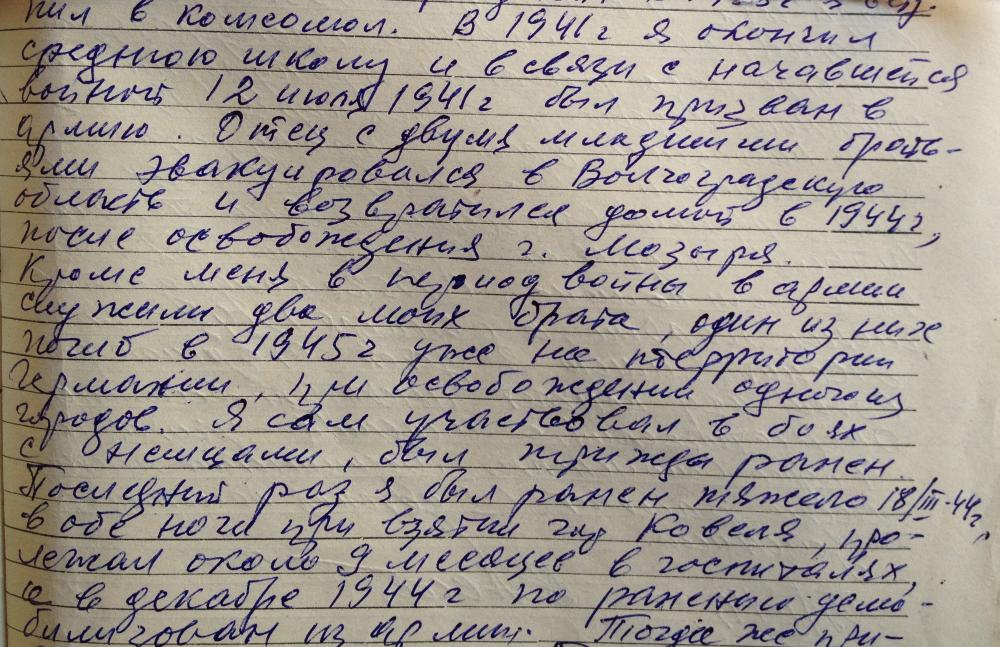 пил в комсомол. В 1941г я окончил
среднюю школу и в связи с начавшейся
войной 12 июля 1941г был призван в
армию. Отец с двумя младшими брать-
ями эвакуировался в Волгоградскую
область и возвратился домой в 1944г,
после освобождения г. Мозыря.
Кроме меня в период войны в армии
служили два моих брата, один из них
погиб в 1945г уже на территории
Германии, при освобождении одного из
городов. Я сам участвовал в боях
с немцами, был трижды ранен.
Последний раз я был ранен тяжело 18/III-44г,
в обе ноги при взятии гор Ковеля, про-
лежал около 9 месяцев в госпиталях,
а в декабре 1944г по ранению демо-
билизован из армии. Тогда же при-